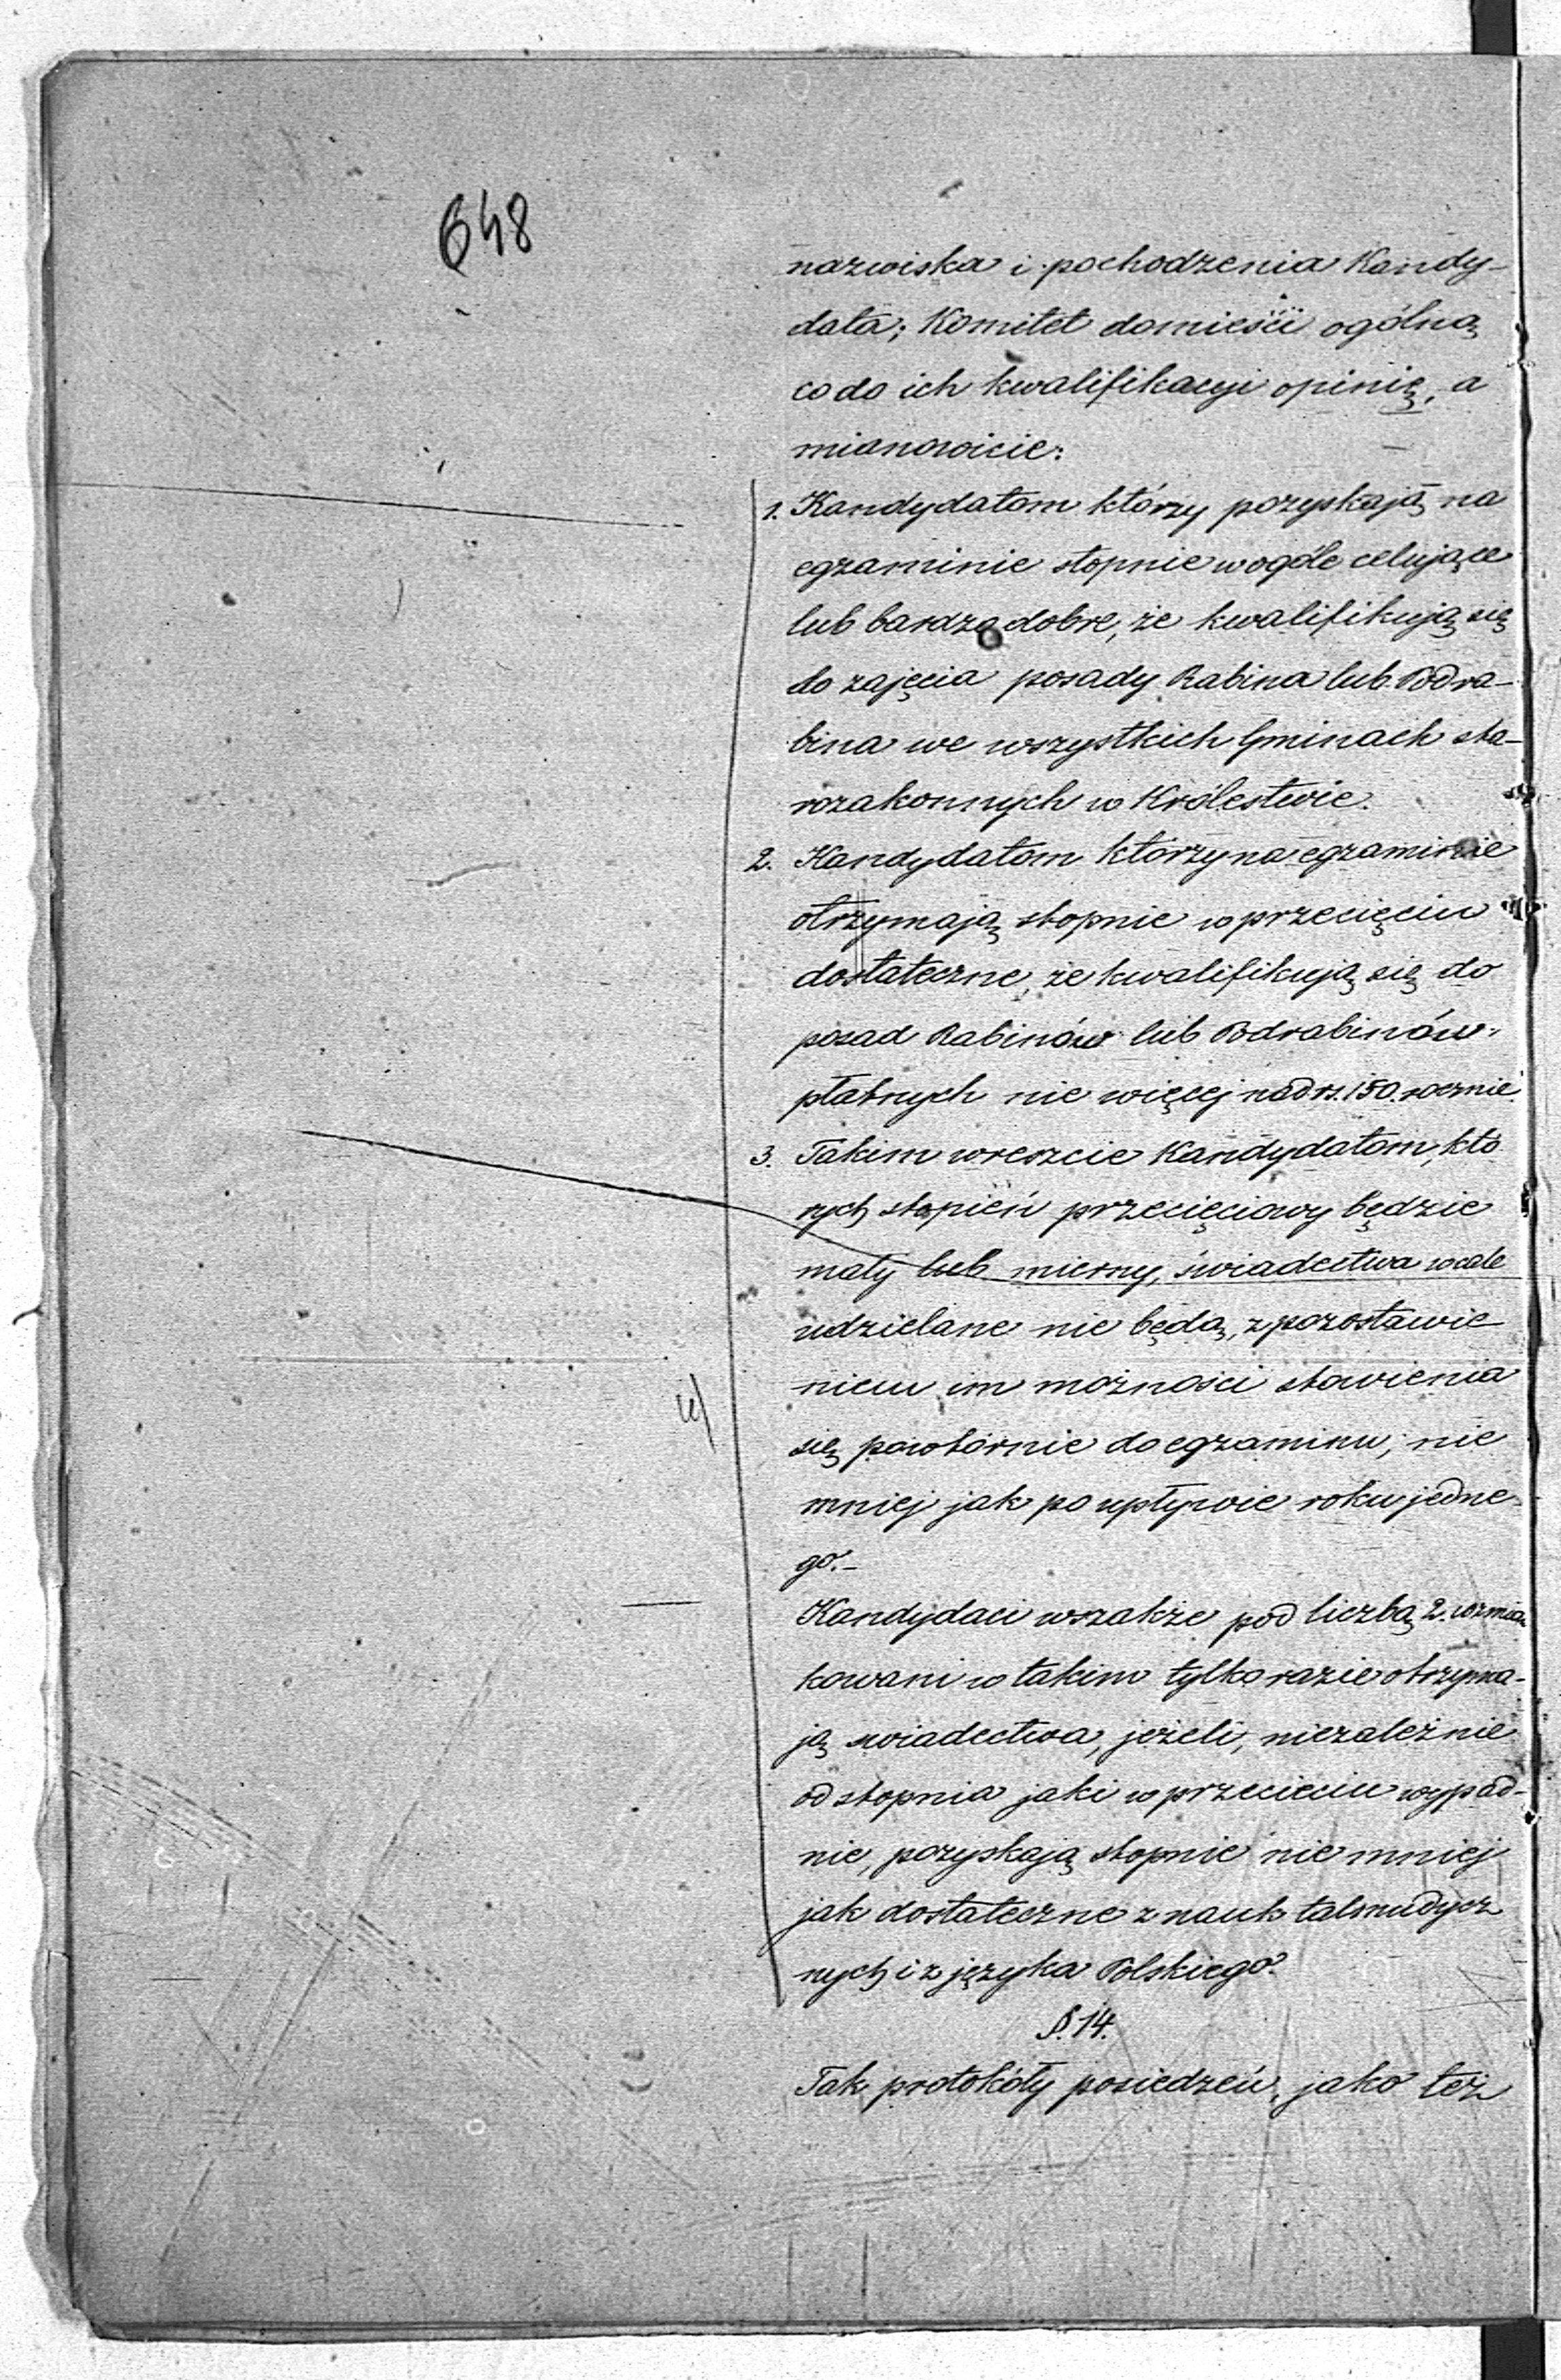 648
nazwiska i pochodzenia Kandy-
data; Komitet domieści ogólną
co do ich kwalifikacyi opinię, a
mianowicie:
1. Kandydatom którzy pozyskają na
egzaminie stopnie wogóle celujące
lub bardzo dobre, że kwalifikują się
do zajęcia posady Rabina lub Podra-
bina we wszystkich Gminach sta-
rozakonnych w Królestwie.
2. Kandydatom którzy na egzaminie
otrzymają stopnie w przecięciu
dostateczne, że kwalifikują się do
posad Rabinów lub Podrabinów
płatnych nie więcej nad rs. 150. rocznie.
3. Takim wreszcie Kandydatom, któ
rych stopień przecięciowy będzie
mały lub mierny, świadectwa wcale
udzielane nie będą, z pozostawie-
niem im możności stawienia
się powtórnie do egzaminu, nie
mniej jak po upływie roku jedne-
go.-
Kandydaci wszakże pod liczbą 2. wzmian
kowani w takim tylko razie otrzyma-
ją swiadectwa, jeżeli, niezależnie
od stopnia jaki w przecieciu wypad-
nie, pozyskają stopnie nie mniej
jak dostateczne z nauk talmudycz
nych i z języka Polskiego.
§. 14.
Tak protokóły posiedzeń, jako też